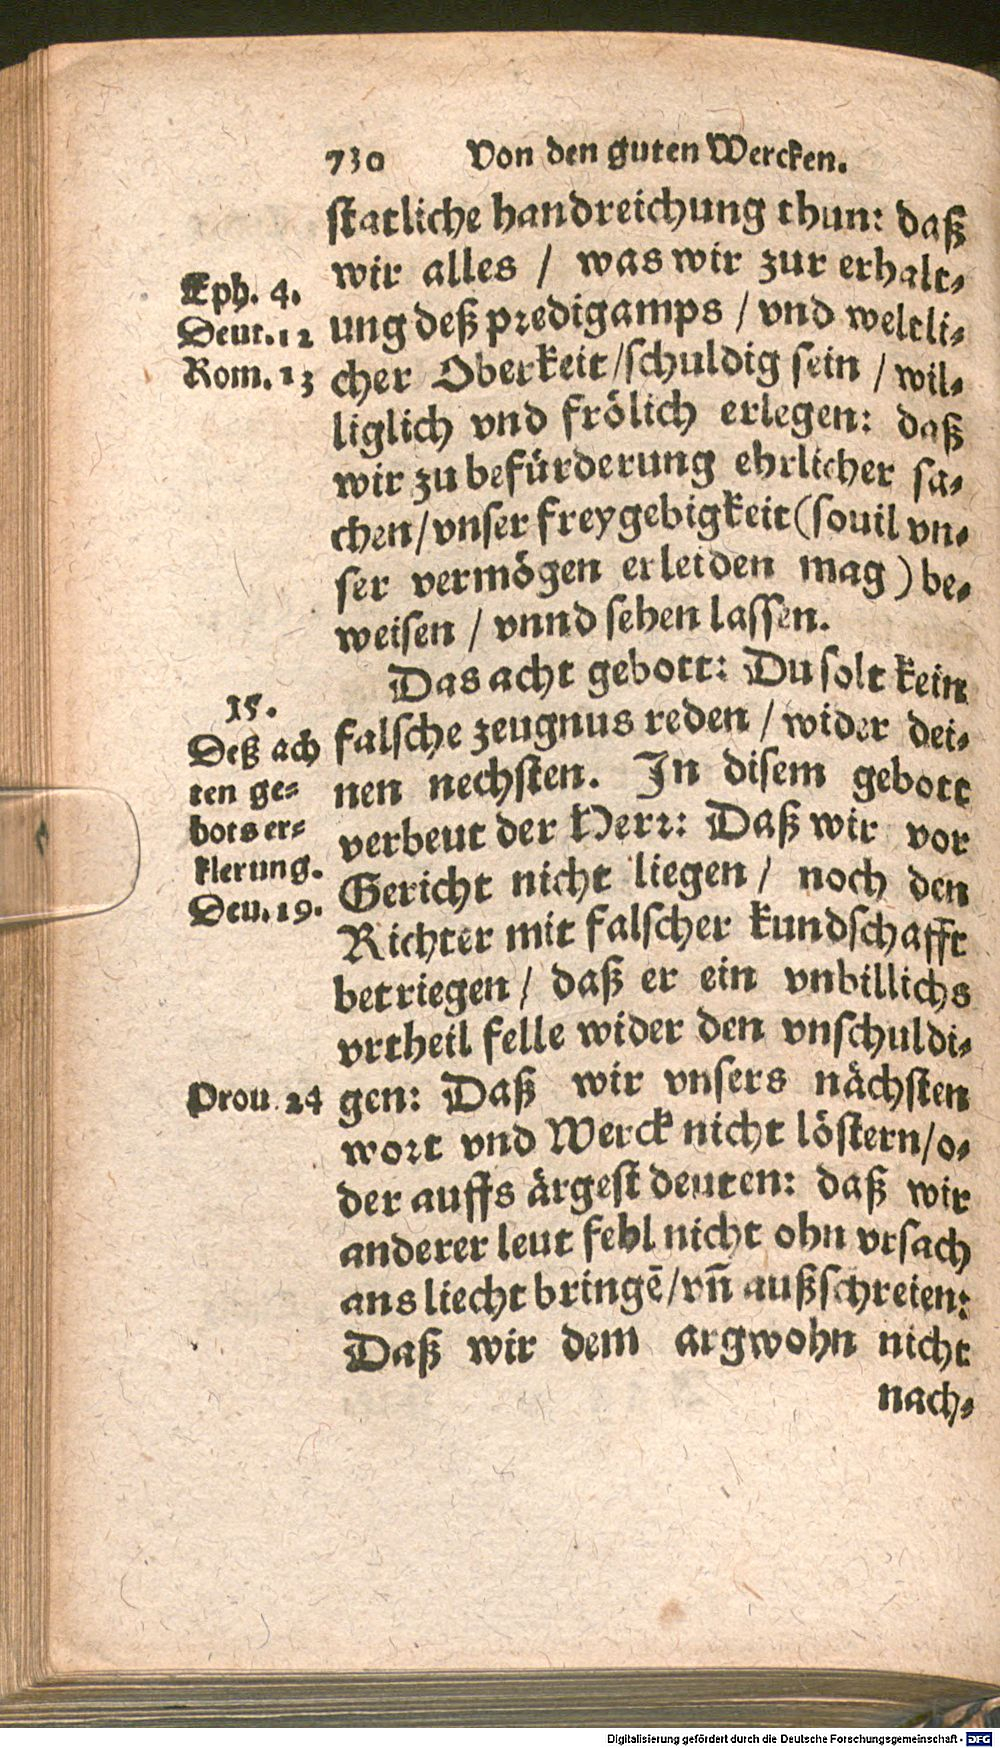 730 Von den guten Wercken.
statliche handreichung thun: daß
wir alles / was wir zur erhalt-
ung deß predigamps / vnd weltli-
cher Oberkeit / schuldig sein / wil-
liglich vnd frölich erlegen: daß
wir zu befürderung ehrlicher sa-
chen / vnser freygebigkeit (souil vn-
ser vermögen erleiden mag) be-
weisen / vnnd sehen lassen.
Das acht gebott: Du solt kein
falsche zeugnus reden / wider dei-
nen nechsten. In disem gebott
verbeut der Herr: Daß wir vor
Gericht nicht liegen / noch den
Richter mit falscher kundschafft
betriegen / daß er ein vnbillichs
vrtheil felle wider den vnschuldi-
gen: Daß wir vnsers nächsten
wort vnd Werck nicht löstern / o-
der auffs ärgest deuten: daß wir
anderer leut fehl nicht ohn vrsach
ans liecht bringē / vn̄ außschreien:
Daß wir dem argwohn nicht
nach-
Eph. 4.
Deut. 12
Rom. 13
15.
Deß ach
ten ge-
bots er-
klerung.
Deu. 19.
Prou. 24
Digitalisierung gefördert durch die Deutsche Forschungsgemeinschaft - DFG